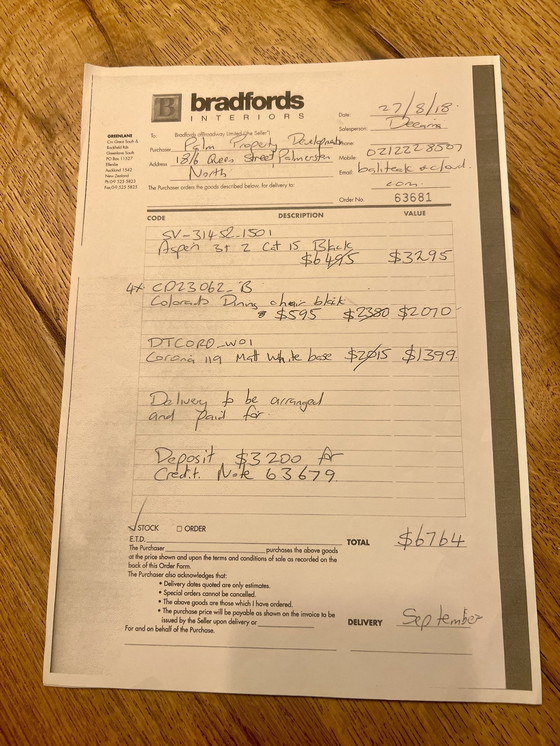 B bradfords
INTERIORS
GREENLANE
Cnr Great South &
Rockfield Rds
Greenlane South
PO Box 11327
Ellerslie
Auckland 1542
New Zealand
Ph.09 525 5823
Fax.09 525 5825
To: Bradfords of Broadway Limited ("the Seller")
Purchaser Palm Property Developments
Address 18/6 Queen Street Palmerston
North
The Purchaser orders the goods described below, for delivery to:
Date: 27/8/18
Salesperson:
Phone:
Mobile: 0212228507
Email:
com
Order No. 63681
CODE DESCRIPTION VALUE
SV-31452-1501
Aspen 3+2 Cat 15 Black
$6495 $3295
4x CD23062-B
Colorado Dining chair black
$595 $2380 $2070
DTCORO-W01
Corona 119 Matt White base $2015 $1399
Delivery to be arranged
and paid for
Deposit $3200 for
Credit Note 63679
STOCK ORDER
E.T.D.
The Purchaser purchases the above goods
at the price shown and upon the terms and conditions of sale as recorded on the
back of this Order Form.
The Purchaser also acknowledges that:
• Delivery dates quoted are only estimates.
• Special orders cannot be cancelled.
• The above goods are those which I have ordered.
• The purchase price will be payable as shown on the invoice to be
issued by the Seller upon delivery or
For and on behalf of the Purchase.
TOTAL $6764
DELIVERY September